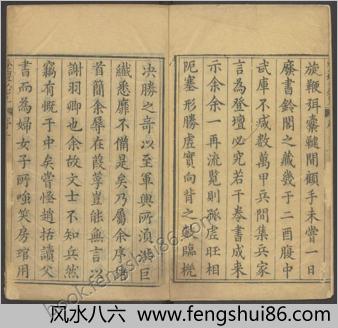 旋鞭弭櫜鞬閒顧手未嘗一日
廢書鈴閣之藏幾于二酉腹中
武庫不㓕數萬甲兵間集兵家
言為登壇必究若干卷書成來
示余余一再流覧則孫虛旺相
阨塞形勝虛實向背之數臨機
决勝之竒以至軍興所湏洪巨
纎悉靡不備是矣乃屬余序簡
首簡余辱在葭莩豈能無言以
謝羽卿也余故文士不知兵然
竊有慨于中矣嘗怪趙括讀父
書而為婦女子所嗤笑房琯用
book.fengshui86.com
风水八六 www.fengshui86.com